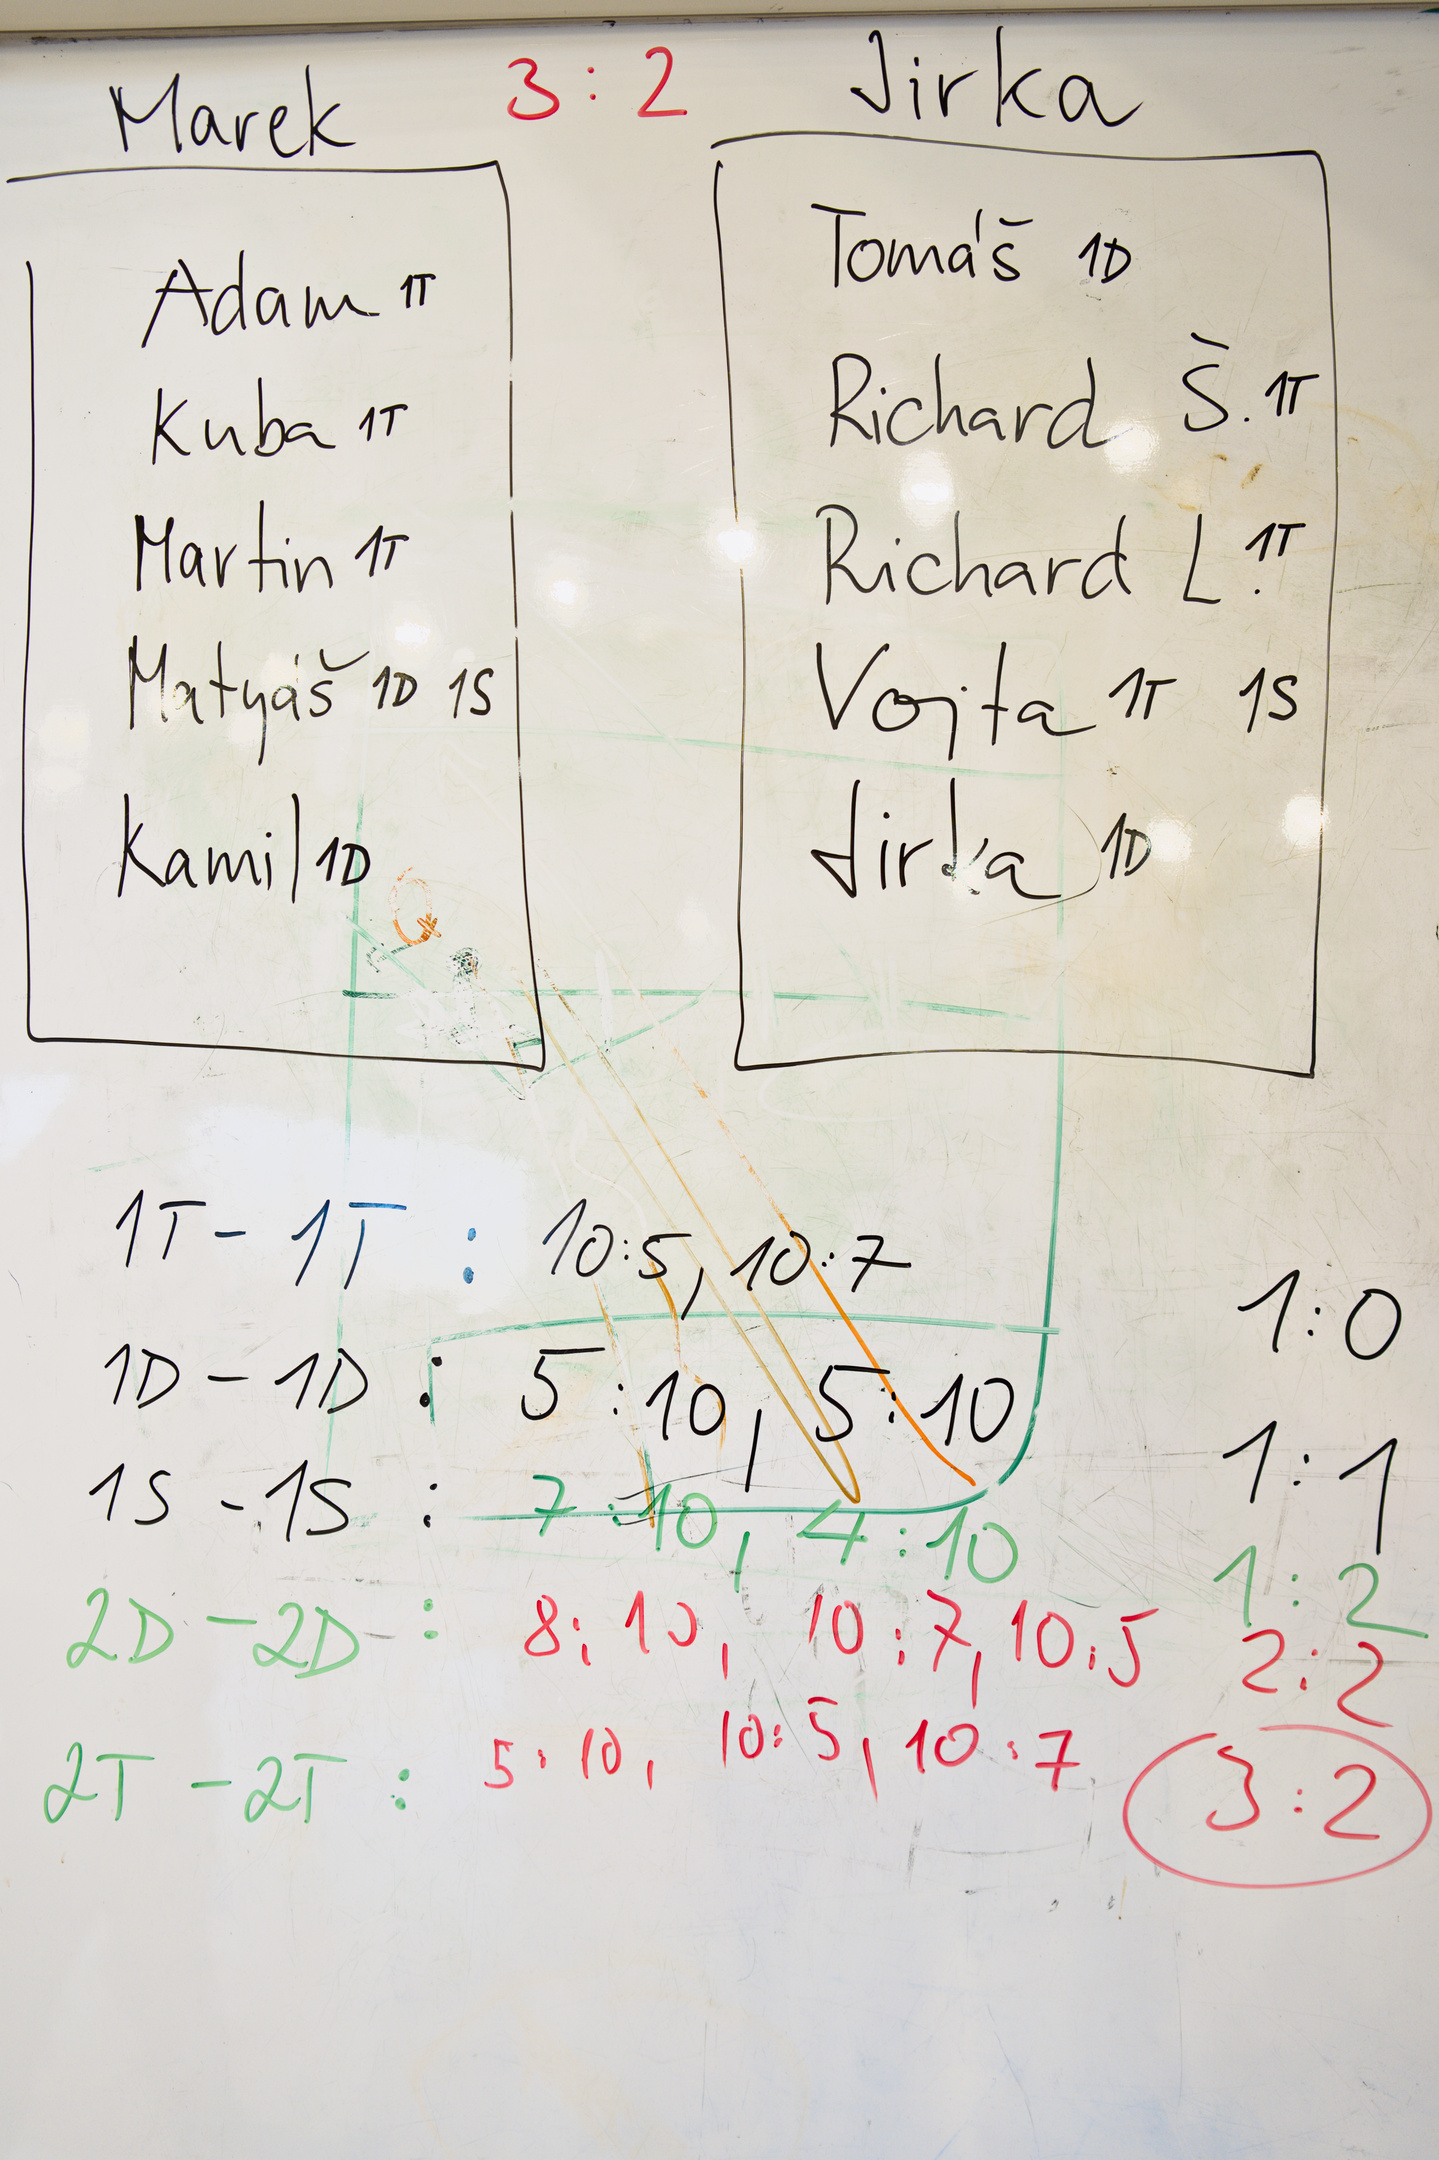 Marek 3:2 Jirka
Adam 1T
Kuba 1T
Martin 1T
Matyáš 1D 1S
Kamil 1D
Tomáš 1D
Richard Š. 1T
Richard L. 1T
Vojta 1T 1S
Jirka 1D
1T - 1T : 10:5, 10:7 1:0
1D - 1D : 5:10, 5:10 1:1
1S - 1S : 7:10, 4:10 1:2
2D - 2D : 8:10, 10:7, 10:5 2:2
2T - 2T : 5:10, 10:5, 10:7 3:2